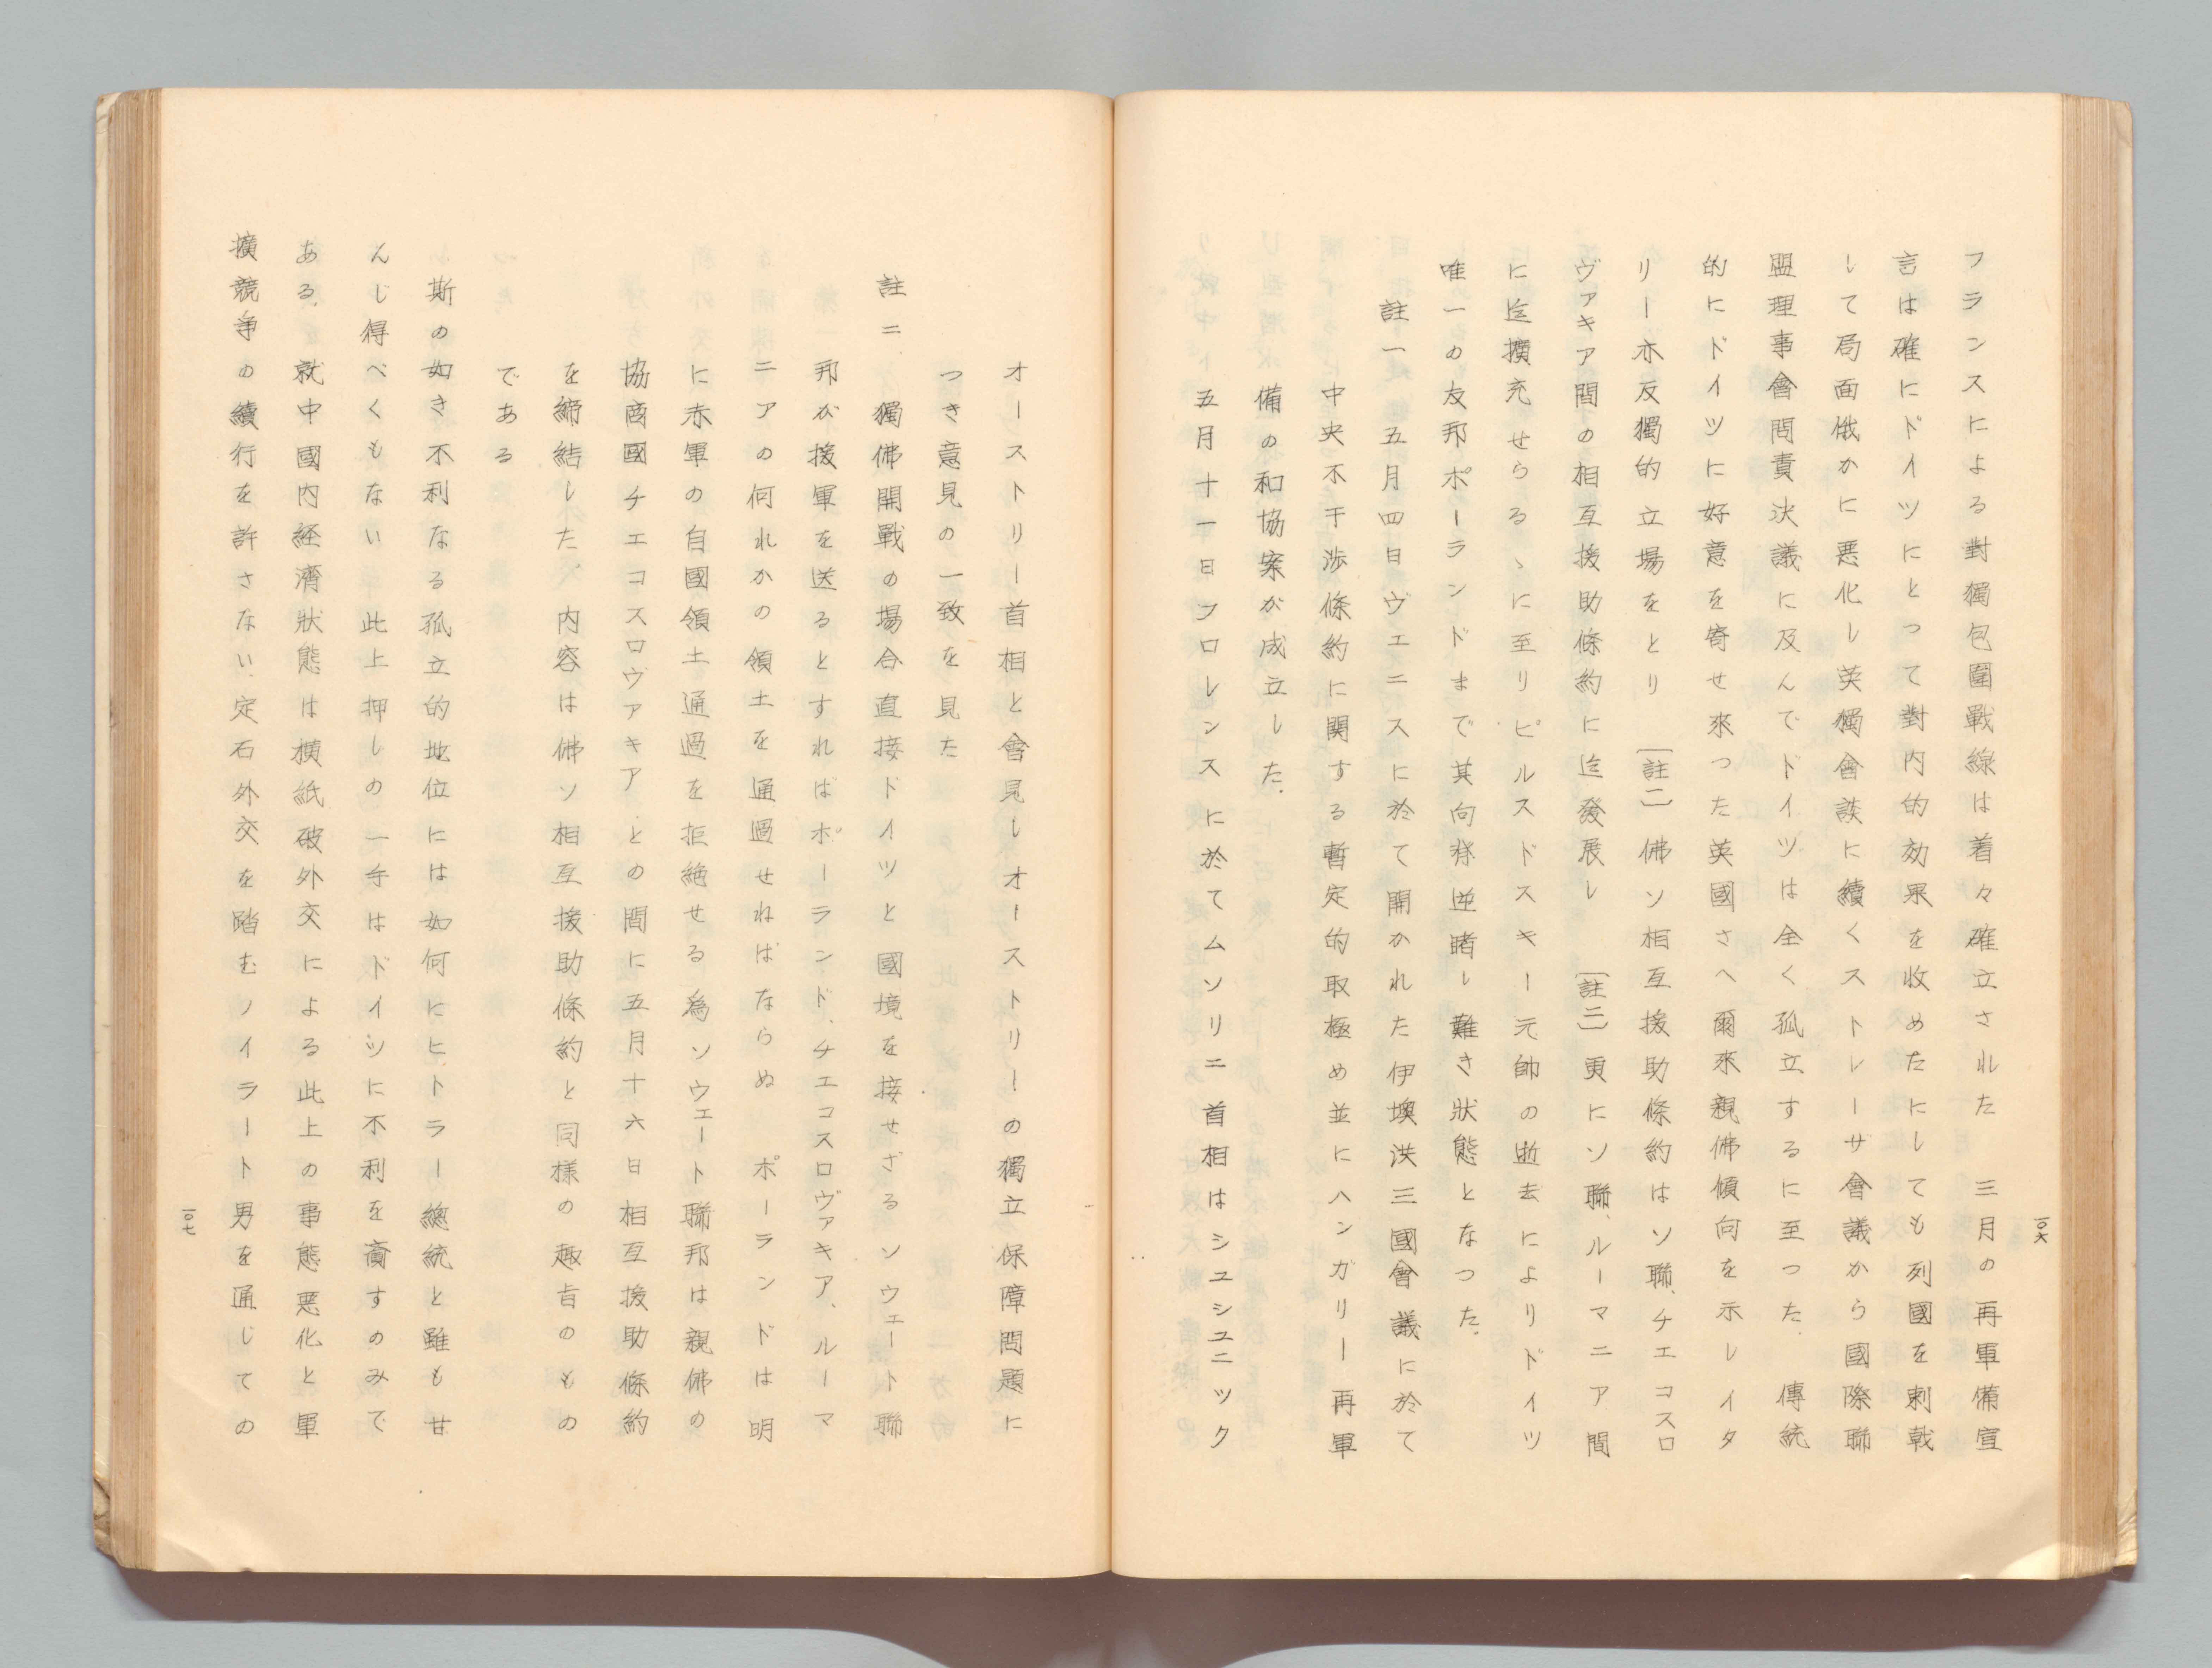 一〇六
フランスによる對獨包圍戰線は着々確立された　三月の再軍備宣
言は確にドイツにとつて對内的効果を收めたにしても列國を刺戟
して局面俄かに悪化し英獨會談に續くストレーザ會議から國際聯
盟理事會問責決議に及んでドイツは全く孤立するに至つた、　傳統
的にドイツに好意を寄せ來つた英國さへ爾來親佛傾向を示しイタ
リー亦反獨的立場をとり　〔註二〕　佛ソ相互援助條約はソ聯、チエコスロ
ヴァキア間の相互援助條約に迄發展し　〔註三〕　更にソ聯、ルーマニア間
に迄擴充せらるゝに至りピルスドスキー元帥の逝去によりドイツ
唯一の友邦ポーランドまで其向背逆睹し難き狀態となつた。
註一　五月四日ヴェニスに於て開かれた伊墺洪三國會議に於て
中央不干渉條約に関する暫定的取極め並にハンガリー再軍
備の和協案が成立した。
五月十一日フロレンスに於てムソリニ首相はシユシユニック
オーストリー首相と會見しオーストリーの獨立保障問題に
つき意見の一致を見た
註二　獨佛開戰の場合直接ドイツと國境を接せざるソウェート聯
邦が援軍を送るとすればポーランド、チエコスロヴァキア、ルーマ
ニアの何れかの領土を通過せねばならぬ　ポーランドは明
に赤軍の自國領土通過を拒絶せる為ソウェート聯邦は親佛の
協商國チエコスロヴァキアとの間に五月十六日相互援助條約
を締結した、内容は佛ソ相互援助條約と同様の趣旨のもの
である
斯の如き不利なる孤立的地位には如何にヒトラー總統と雖も甘
んじ得べくもない　此上押しの一手はドイツに不利を齎すのみで
ある、就中國内経濟狀態は横紙破外交による此上の事態悪化と軍
擴競争の續行を許さない、定石外交を踏むノイラート男を通じての
一〇七